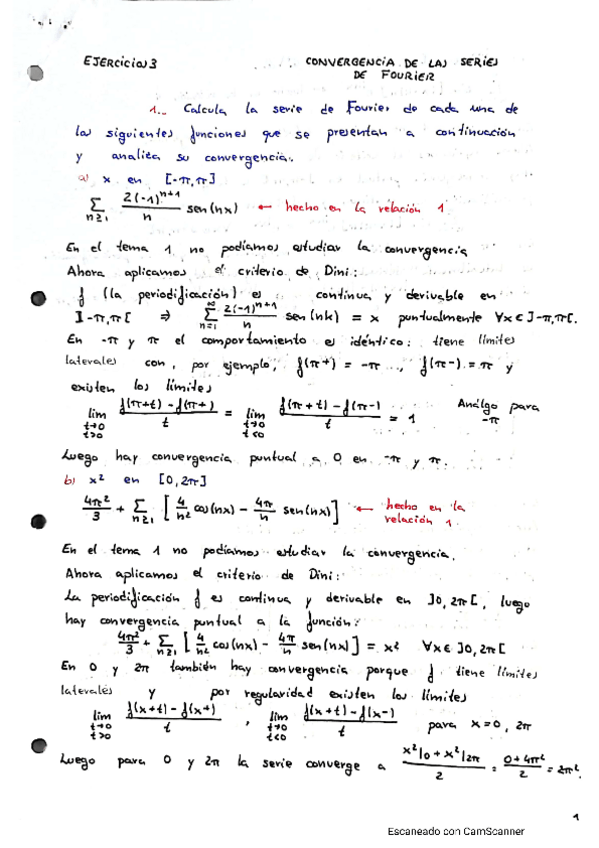 EJERCICIOS 3 CONVERGENCIA DE LAS SERIES
DE FOURIER
1.. Calcula la serie de Fourier de cada una de
las siguientes funciones que se presentan a continuación
y analiza su convergencia.
a) x en [-π,π]
∑_{n≥1} 2(-1)^{n+1}/n sen(nx) ← hecho en la relación 1
En el tema 1 no podíamos estudiar la convergencia
Ahora aplicamos el criterio de Dini:
f (la periodificación) es continua y derivable en
]-π,π[ ⇒ ∑_{n=1}^{∞} 2(-1)^{n+1}/n sen(nx) = x puntualmente ∀x∈]-π,π[.
En -π y π el comportamiento es idéntico: tiene límites
laterales con, por ejemplo, f(π+) = -π ..., f(π-) = π y
existen los límites
lim_{t→0, t>0} f(π+t)-f(π+)/t = lim_{t→0, t<0} f(π+t)-f(π-)/t = 1 Análgo para -π
Luego hay convergencia puntual a 0 en -π y π.
b) x² en [0,2π]
4π²/3 + ∑_{n≥1} [4/n² cos(nx) - 4π/n sen(nx)] ← hecho en la relación 1
En el tema 1 no podíamos estudiar la convergencia.
Ahora aplicamos el criterio de Dini:
La periodificación f es continua y derivable en ]0,2π[, luego
hay convergencia puntual a la función:
4π²/3 + ∑_{n≥1} [4/n² cos(nx) - 4π/n sen(nx)] = x² ∀x∈]0,2π[
En 0 y 2π también hay convergencia porque f tiene límites
laterales y por regularidad existen los límites
lim_{t→0, t>0} f(x+t)-f(x+)/t , lim_{t→0, t<0} f(x+t)-f(x-)/t para x=0, 2π
Luego para 0 y 2π la serie converge a x²|0 + x²|2π/2 = 0+4π²/2 = 2π².
1
Escaneado con CamScanner